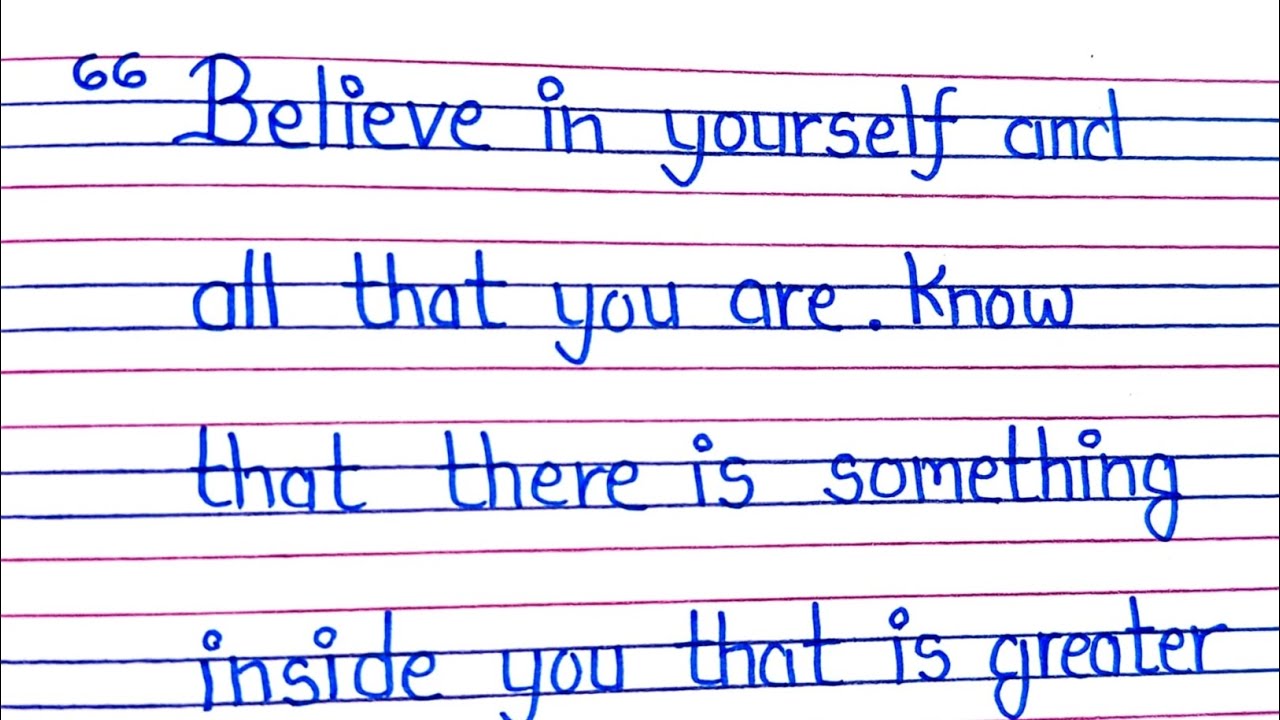 “Believe in yourself and
all that you are. Know
that there is something
inside you that is greater